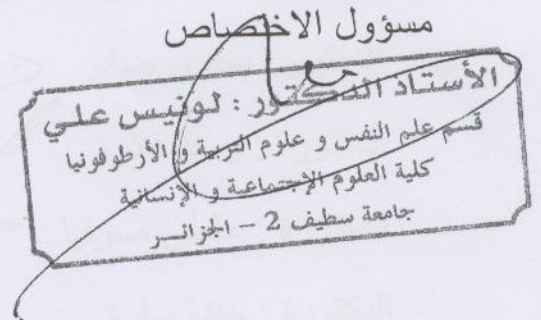 مسؤول الاختصاص
الأستاذ الدكتور : لونيس علي
قسم علم النفس و علوم التربية و الأرطوفونيا
كلية العلوم الإجتماعية و الإنسانية
جامعة سطيف 2 – الجزائـــر